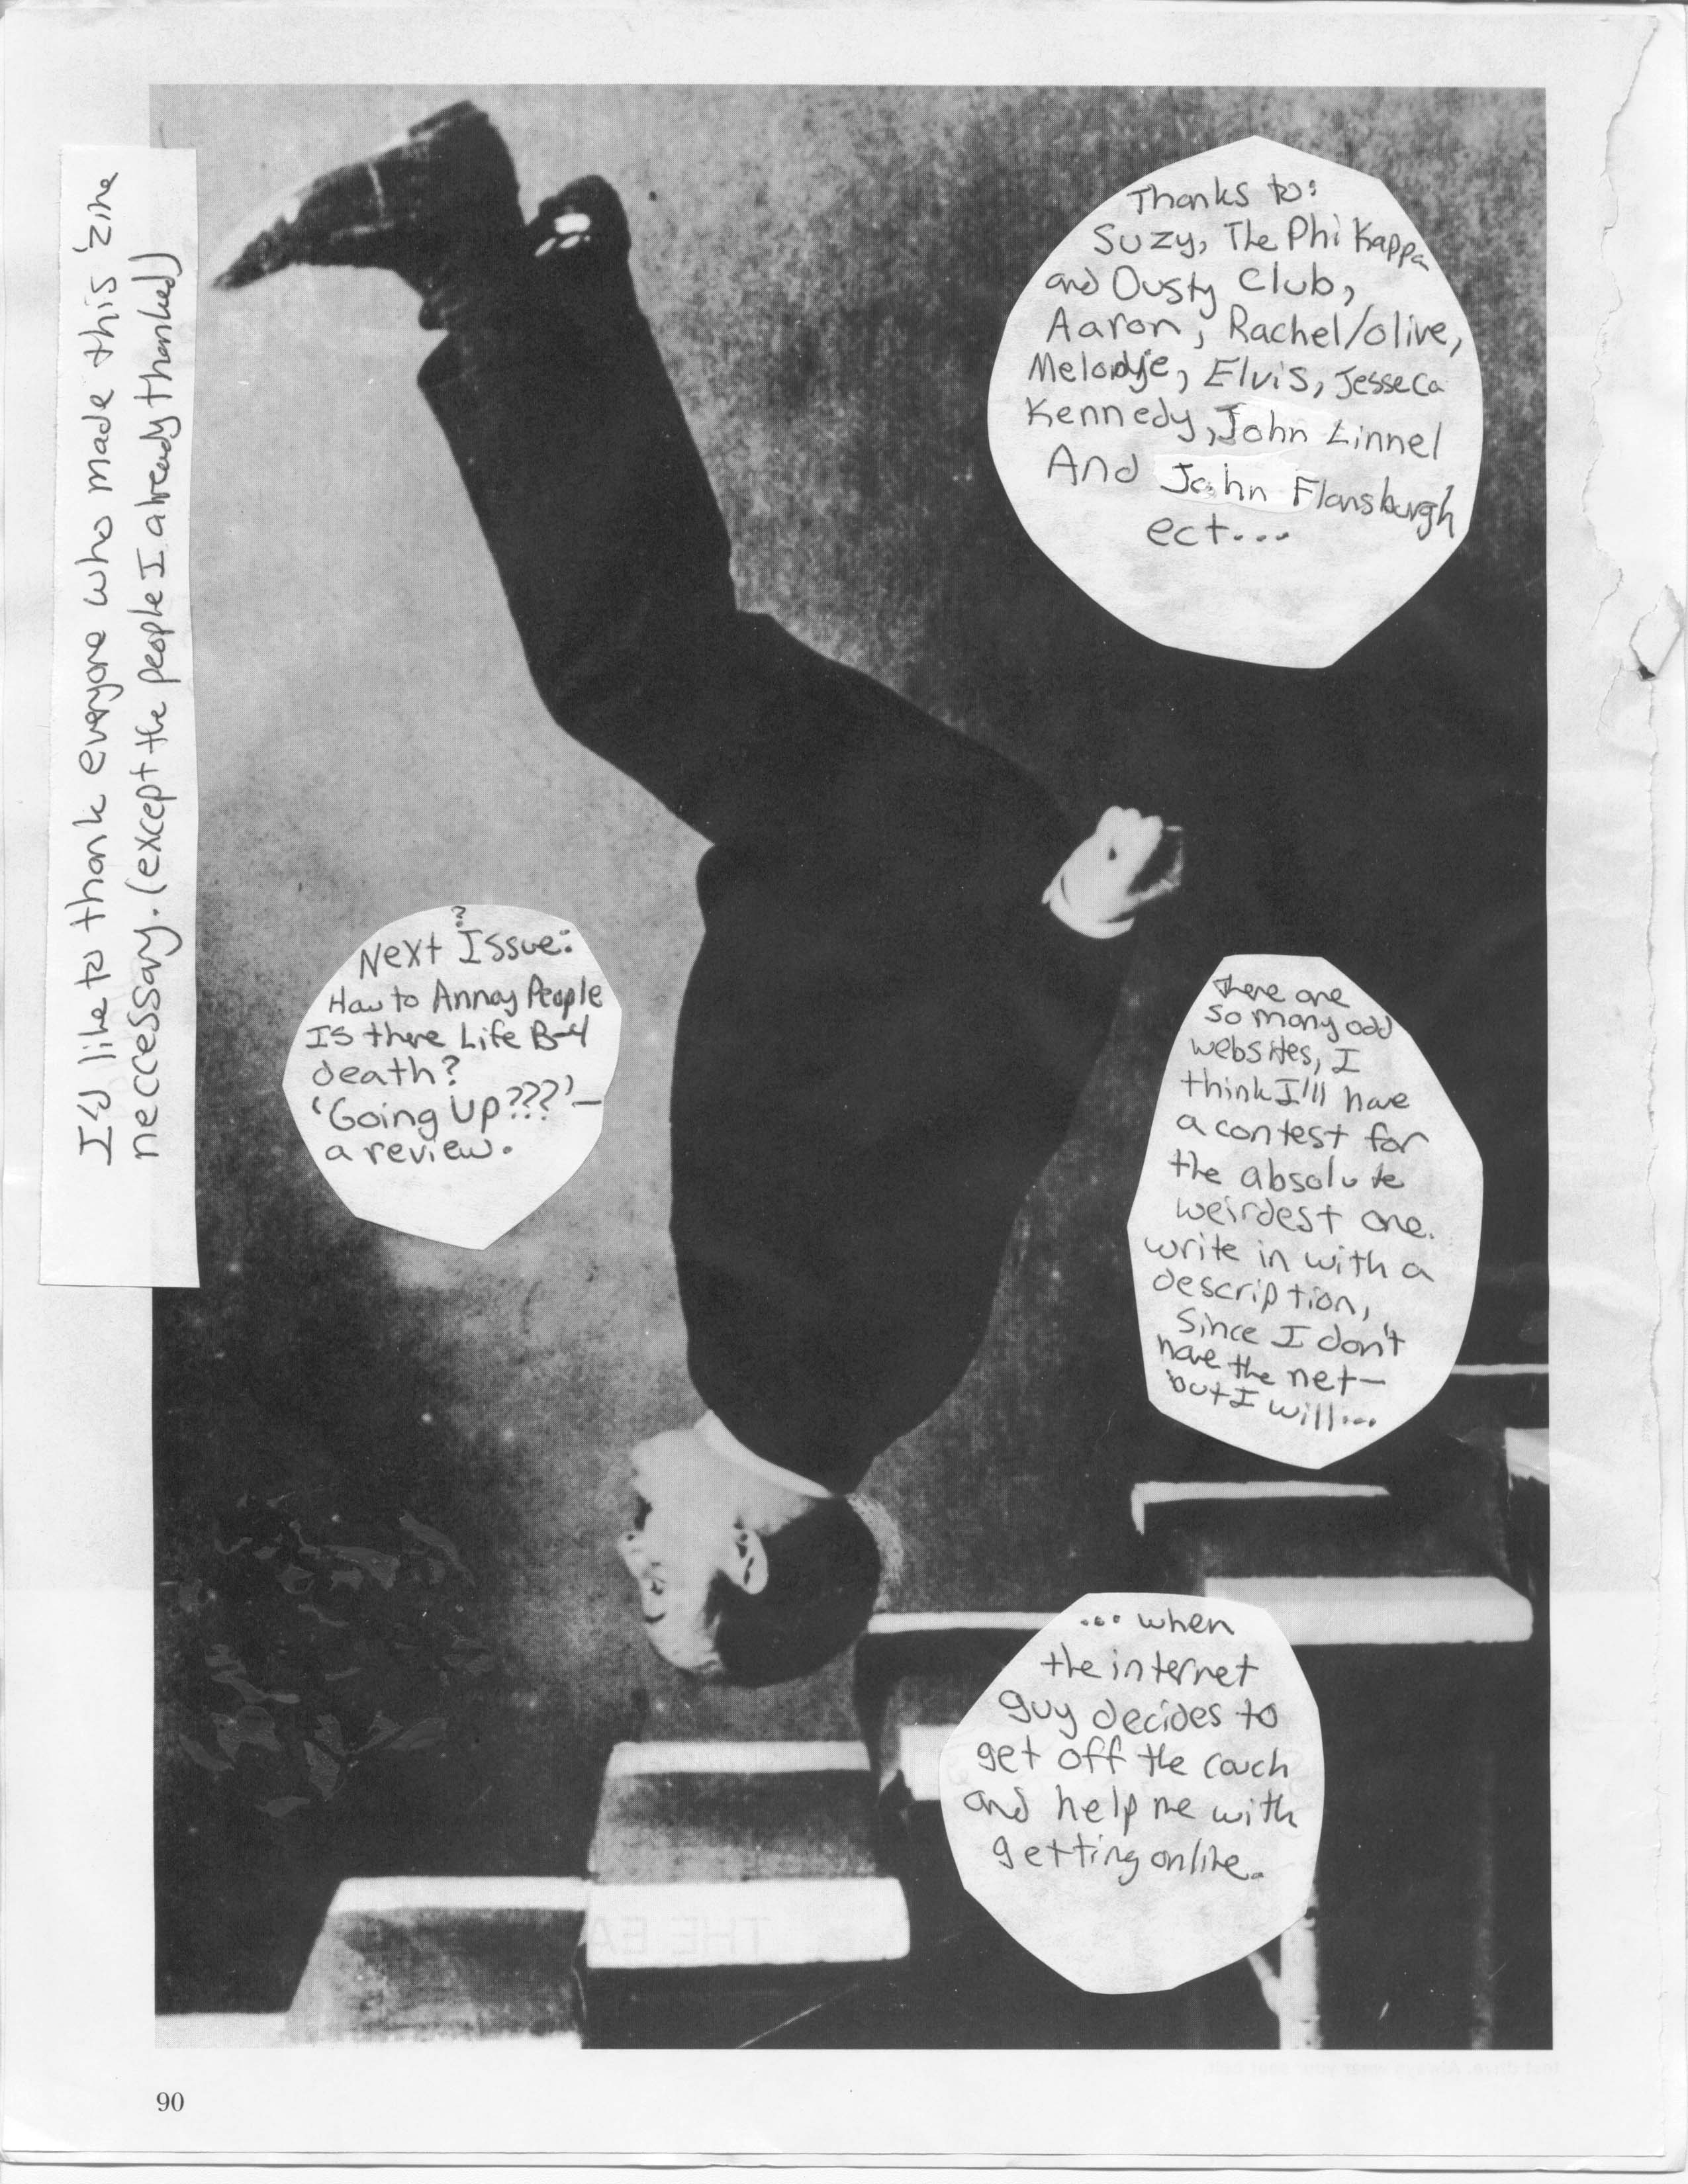 I'd like to thank everyone who made this 'zine
neccessary. (except the people I already thanked)
Thanks to:
Suzy, The Phi Kappa
and Dusty Club,
Aaron, Rachel/olive,
Melodye, Elvis, Jesseca
Kennedy, John Linnel
And John Flansburgh
ect...
?
Next Issue:
How to Annoy People
Is there Life B-4
death?
'Going Up???'-
a review.
there are
so many odd
websites, I
think I'll have
a contest for
the absolute
weirdest one.
write in with a
description,
since I don't
have the net-
but I will...
... when
the internet
guy decides to
get off the couch
and help me with
getting online.
90